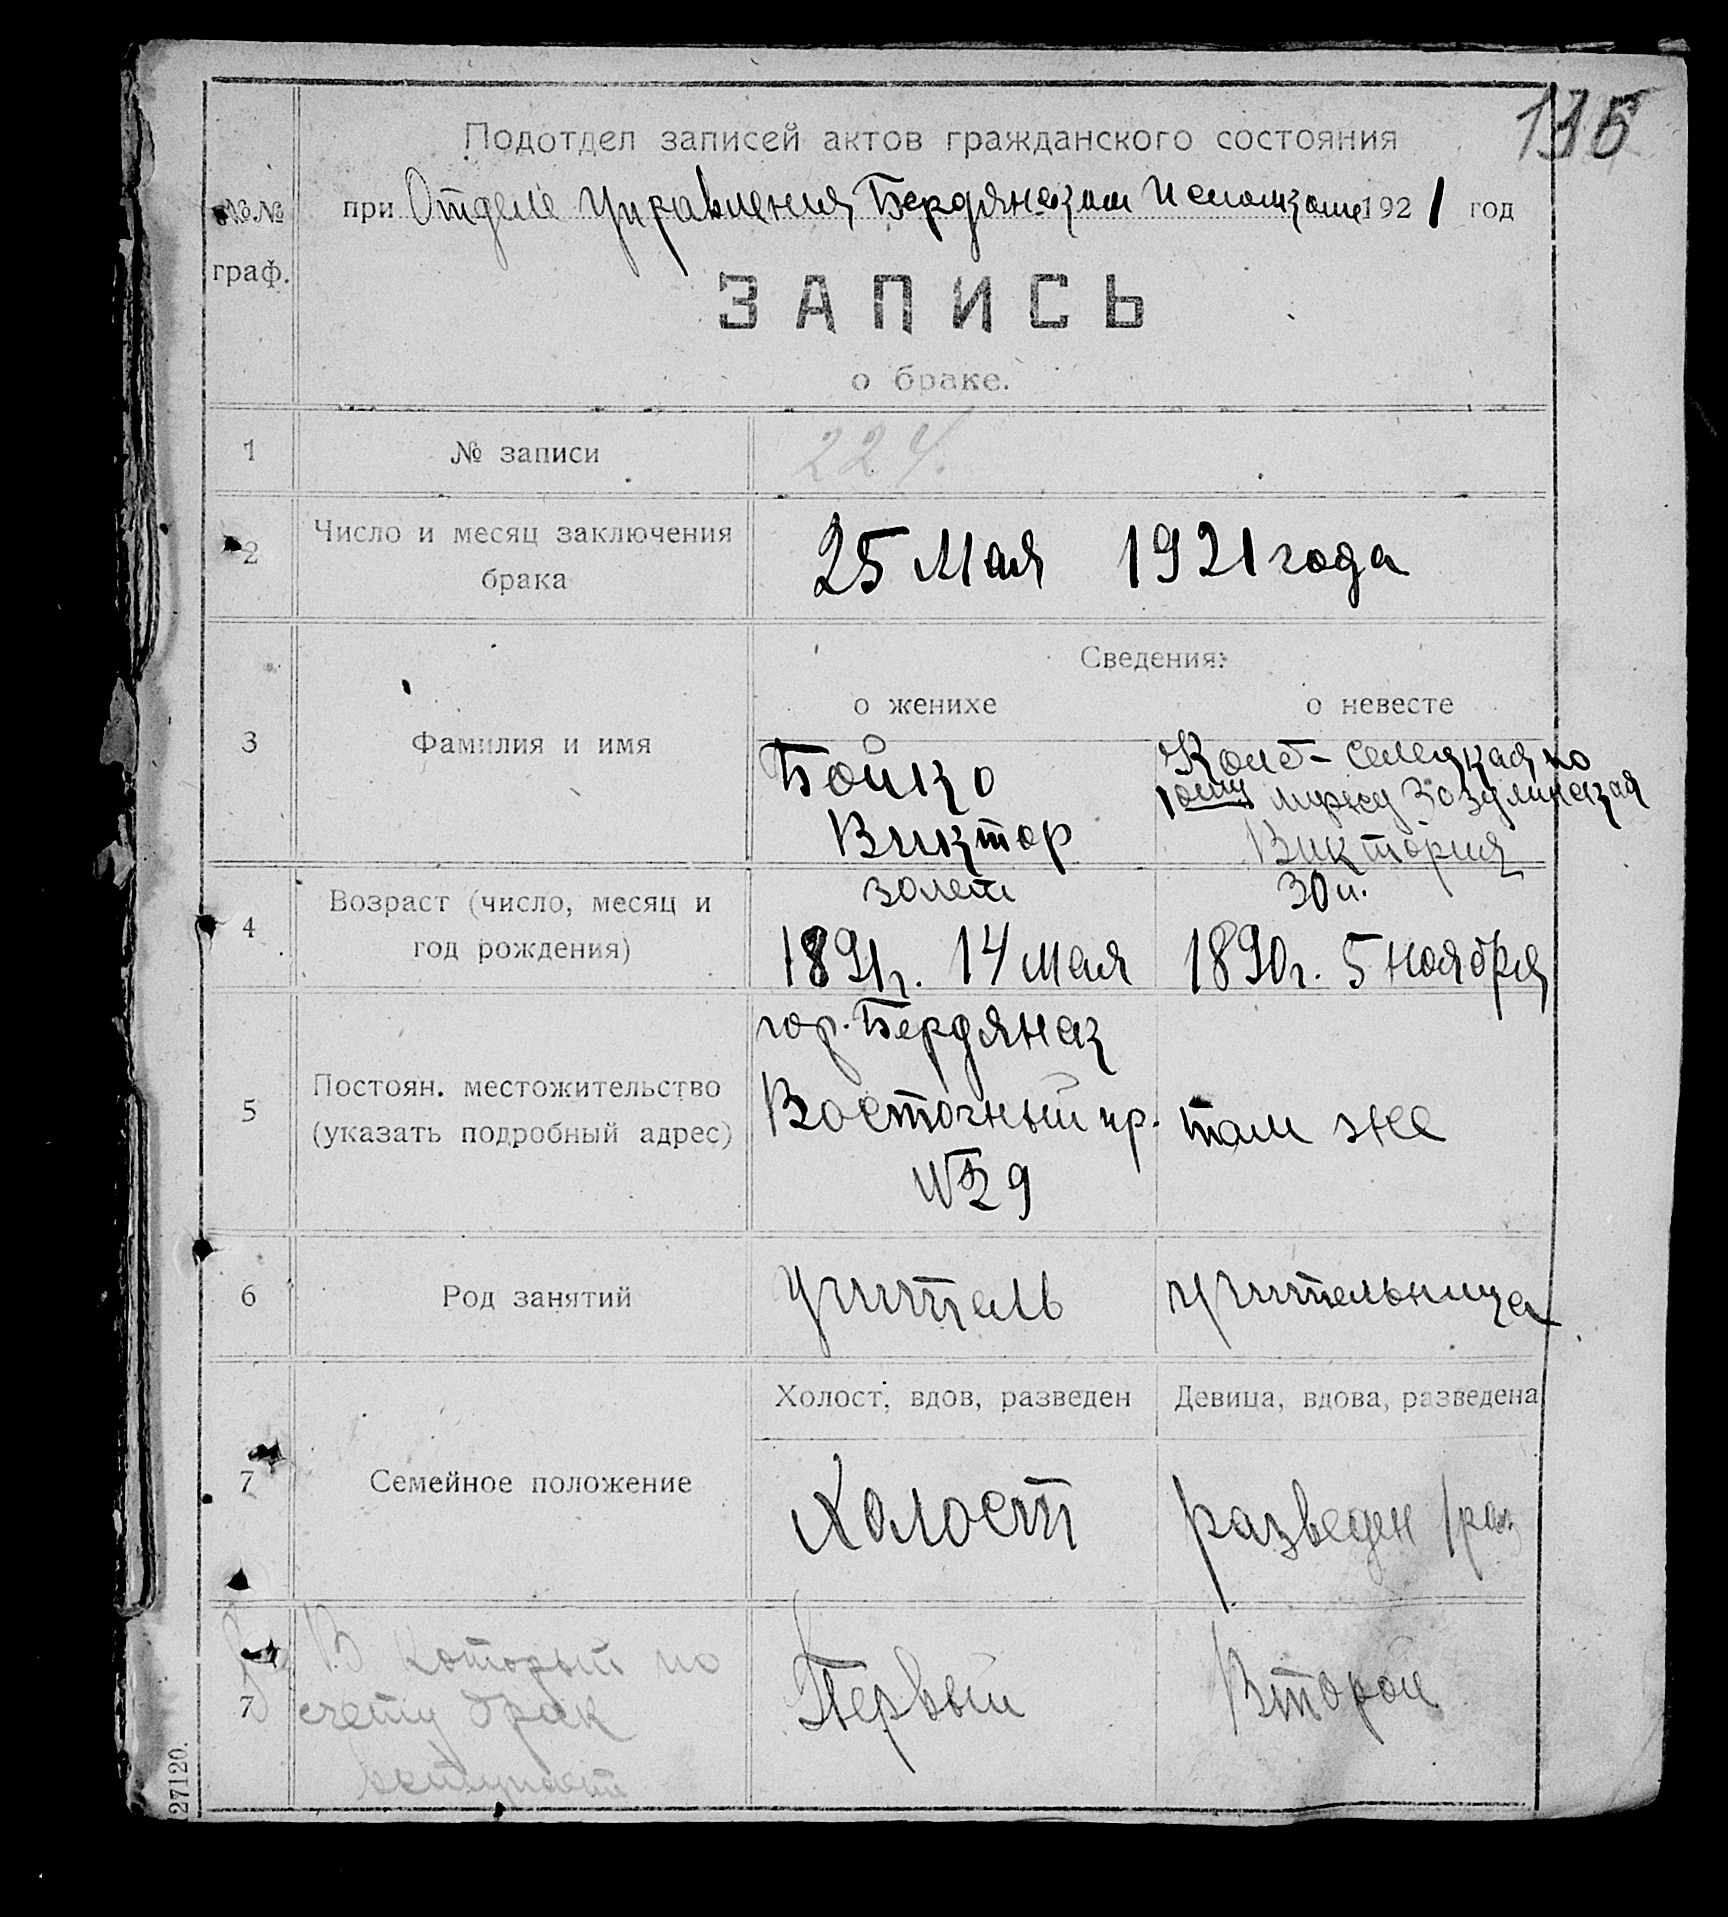 135
Подотдел записей актов гражданского состояния
№№ граф.
при Отделе Управления Бердянском Исполкоме 1921 год
ЗАПИСЬ
о браке.
1 № записи 224.
2 Число и месяц заключения брака 25 Мая 1921 года
Сведения:
о женихе о невесте
3 Фамилия и имя
Бойко
Виктор
Селецкая по
мужу
Виктория
4 Возраст (число, месяц и год рождения)
30 лет 30 л.
1891г. 14 мая 1890г. 5 ноября
5 Постоян. местожительство (указать подробный адрес)
гор. Бердянск
Восточный пр. там же
№ 29
6 Род занятий учитель учительница
Холост, вдов, разведен Девица, вдова, разведена
7 Семейное положение Холост разведен 1 раз
7 В который по счету брак вступает Первый Второй
27120.